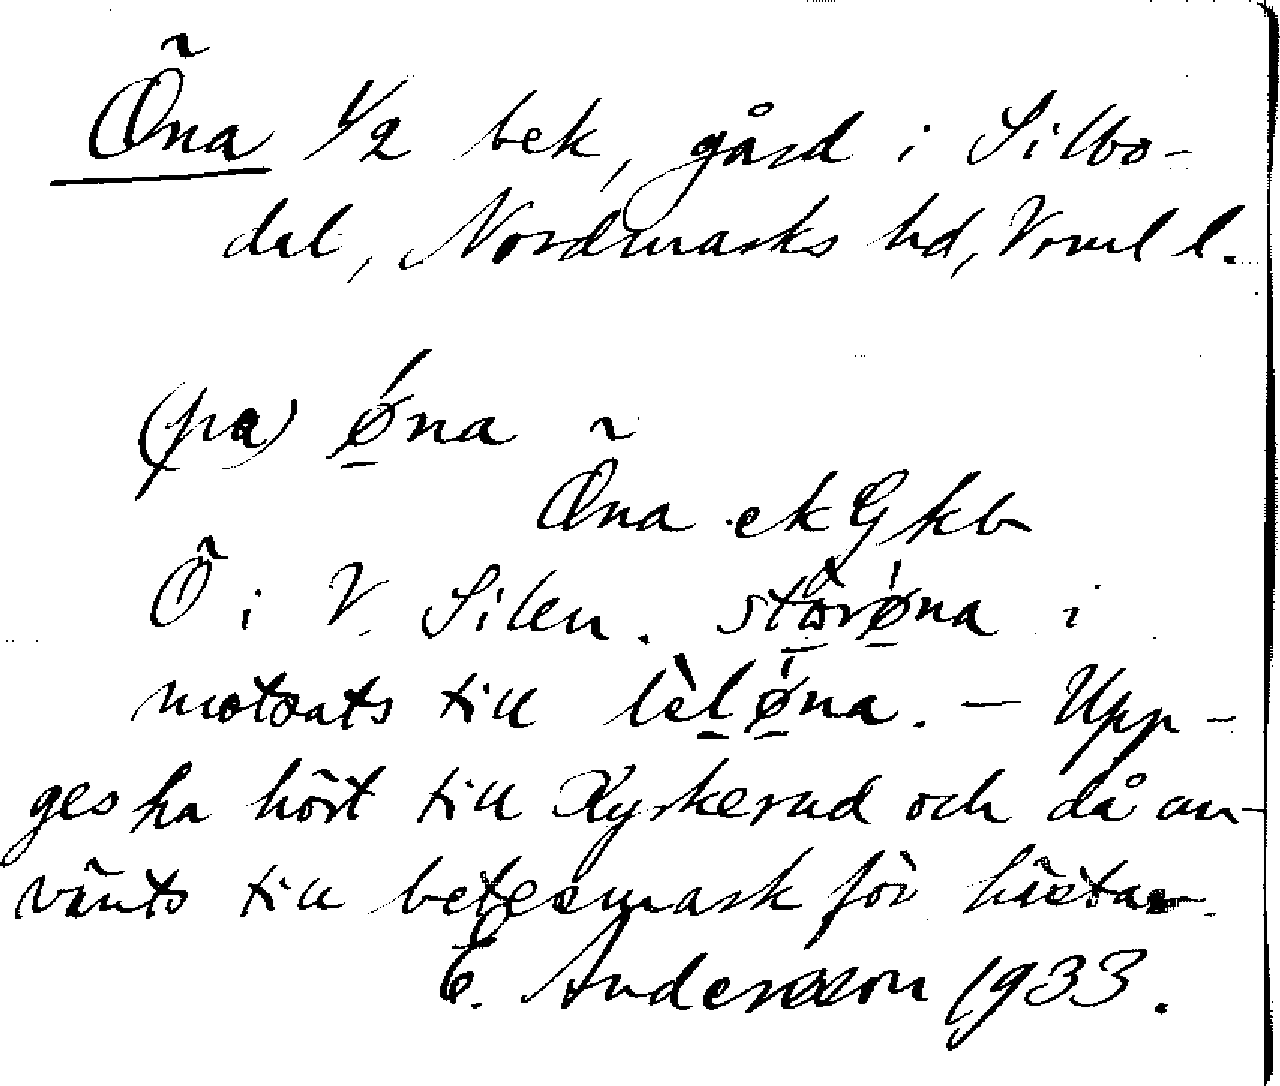 Öna 1/2 bek, gård i Silbo-
dal, Nordmarks hd, Vrml l.
(pa) øna
Öna ek G kb
Ö i V. Silen. storøna i
motsats till leløna. – Upp-
ges ha hört till Kyrkerud och då an-
vänts till betesmark för hästar.
E. Andersson 1933.